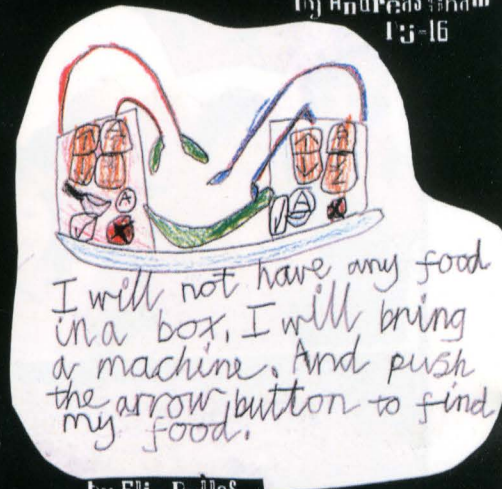 by Andreas
PS-16
I will not have any food
in a box. I will bring
a machine. And push
the arrow button to find
my food.